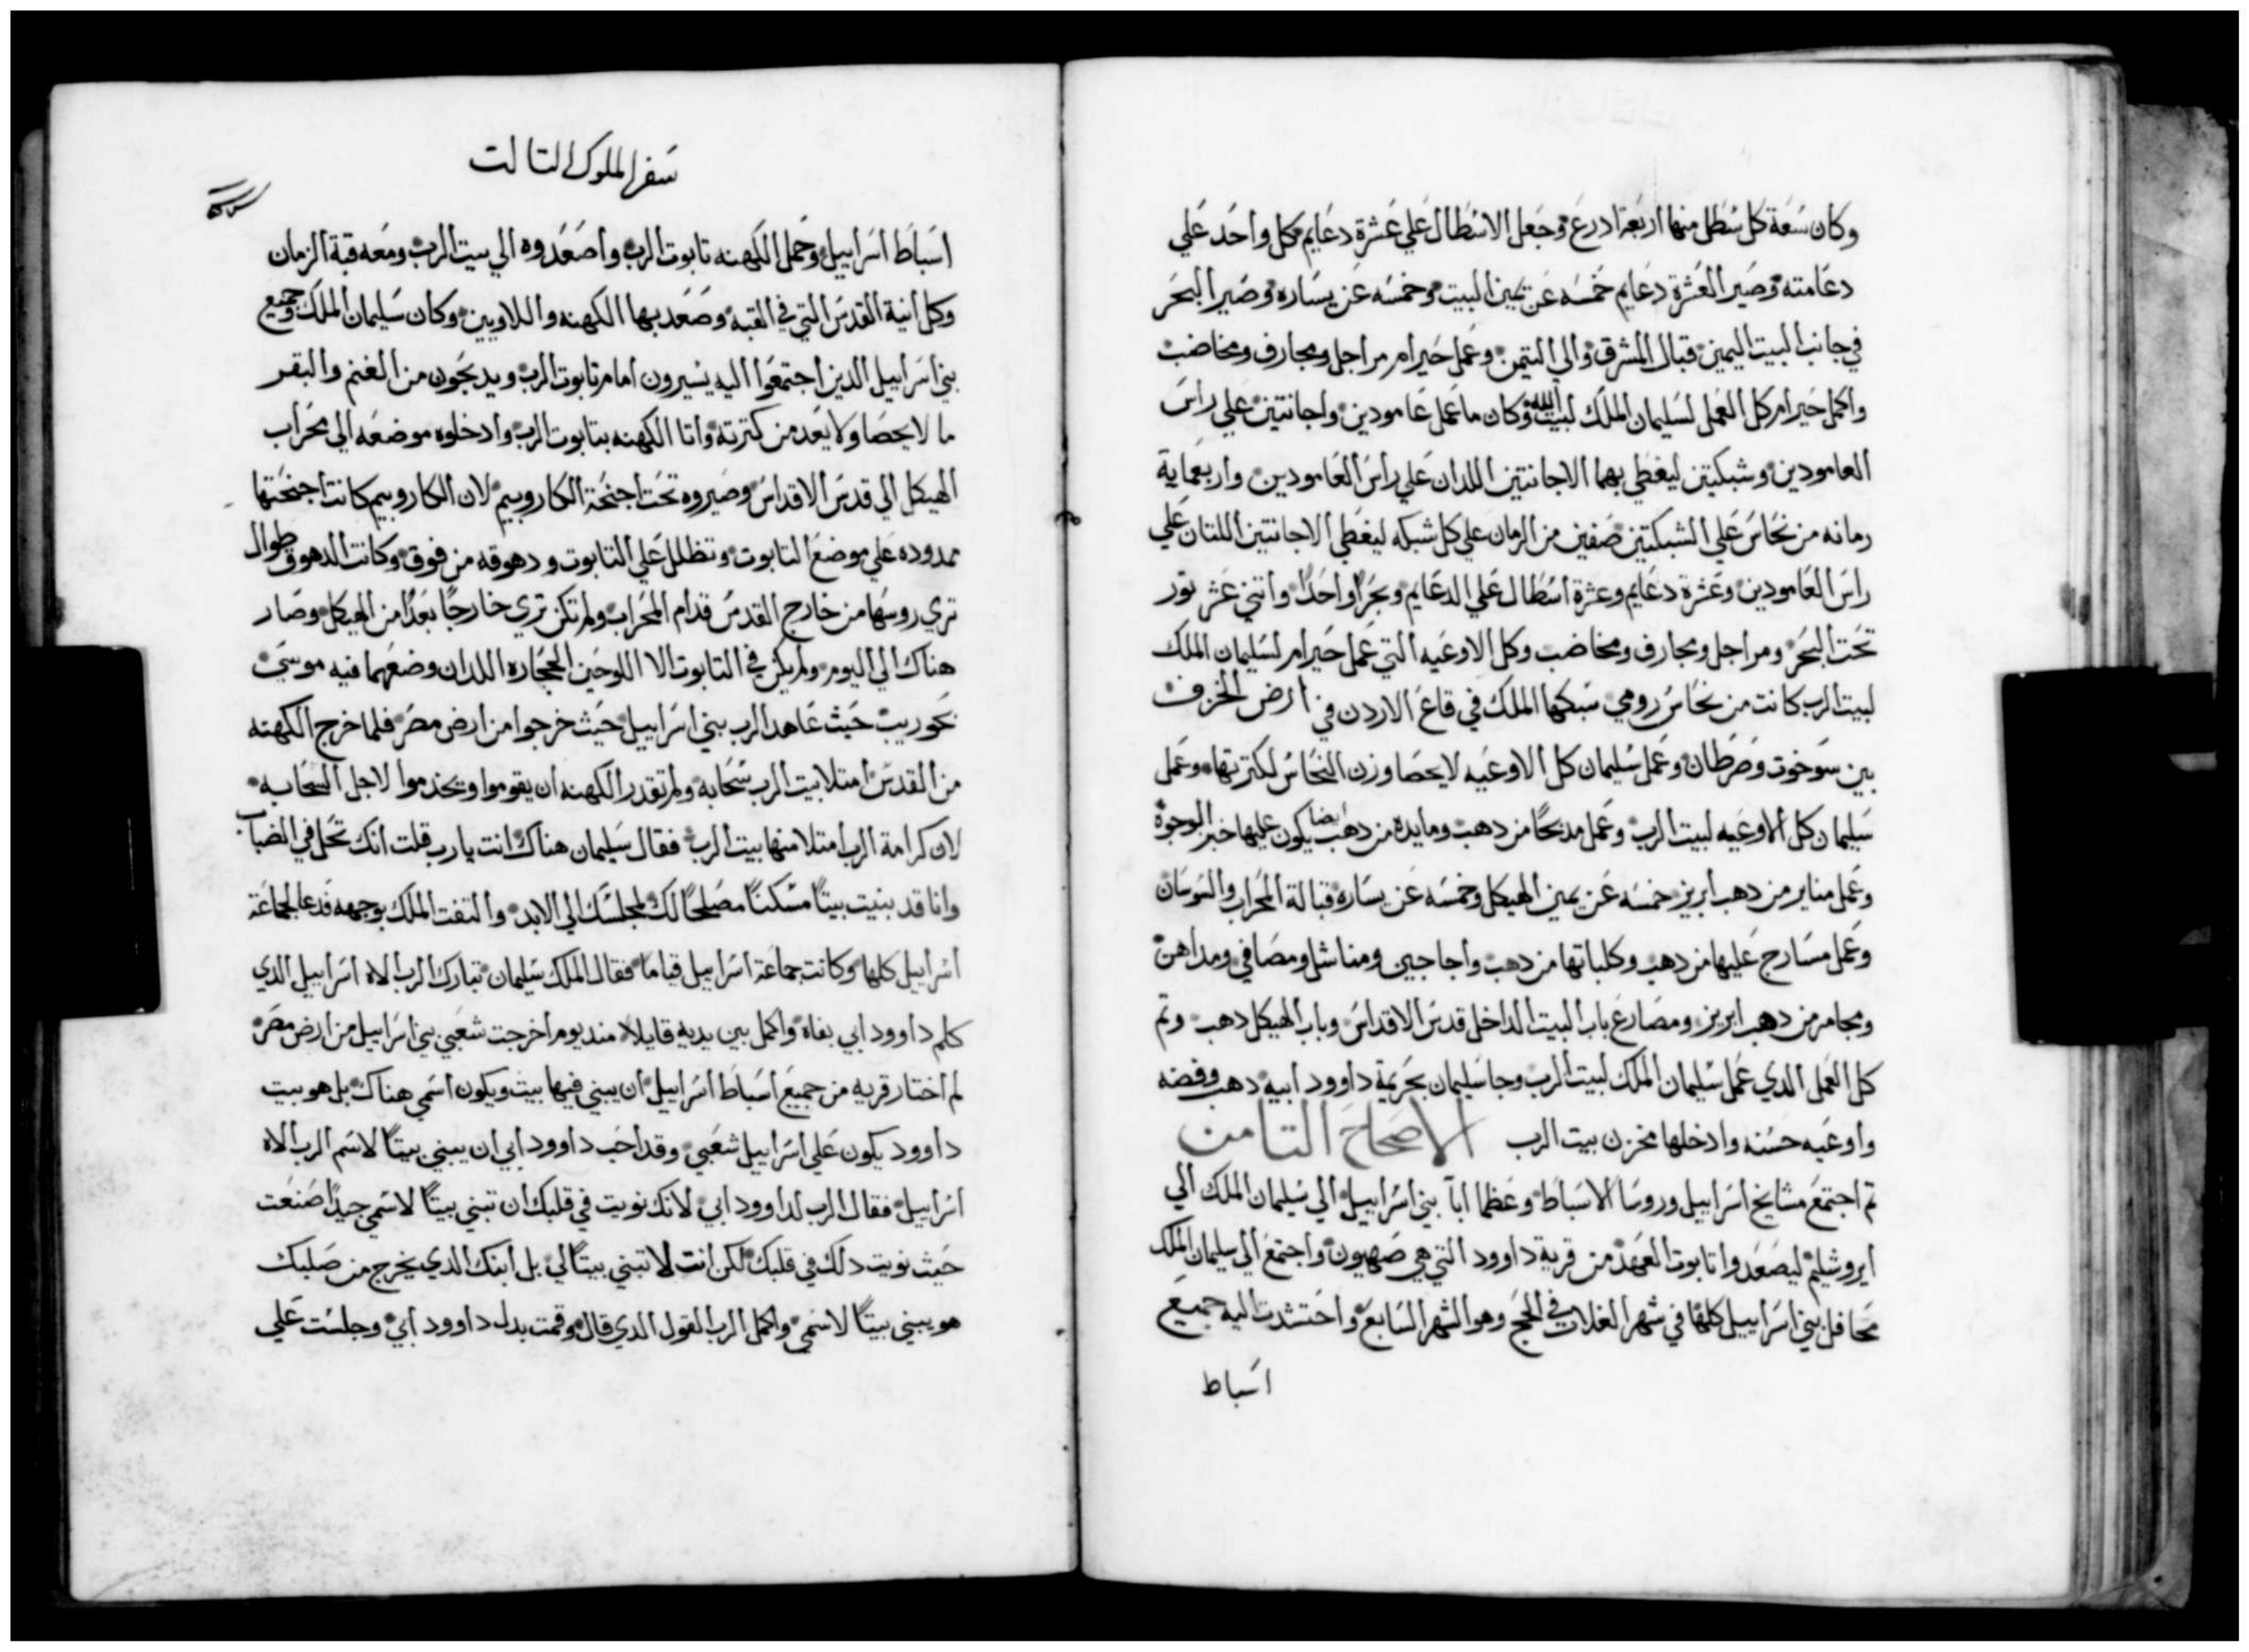 وكان سعة كل سطل منها اربعة ادرع وجعل الاسطال علي عشرة دعايم كل واحد علي
دعامته وصير العشرة دعايم خمسه عن يمين البيت وخمسه عن يساره وصير البحر
في جانب البيت اليمين قبال المشرق والي التيمن وعمل حيرام مراجل ومجارف ومخاضب
واكمل حيرام كل العمل لسليمان الملك لبيت الله وكان ما عمل عامودين واجانتين علي راس
العامودين وشبكتين ليغطي بهما الاجانتين اللدان علي راس العامودين واربعماية
رمانه من نحاس علي الشبكتين صفين من الرمان علي كل شبكه ليغطي الاجانتين اللتان علي
راس العامودين وعشرة دعايم وعشرة اسطال علي الدعايم وبحرا واحدا واتني عشر تور
تحت البحر ومراجل ومجارف ومخاضب وكل الاوعيه التي عمل حيرام لسليمان الملك
لبيت الرب كانت من نحاس رومي سبكها الملك في قاع الاردن في ارض الخزف
بين سوخوت وصرطان وعمل سليمان كل الاوعيه لا يحصا وزن النحاس لكترتها وعمل
سليمان كل الاوعيه لبيت الرب وعمل مدبحا من دهب ومايده من دهب ايضا يكون عليها خبز الوجوة
وعمل مناير من دهب ابريز خمسه عن يمين الهيكل وخمسه عن يساره قبالة المحراب والسوسان
وعمل مسارج عليها من دهب وكلباتها من دهب واجاجين ومناشل ومصافي ومداهن
ومجامر من دهب ابريز ومصارع باب البيت الداخل قدس الاقداس وباب الهيكل دهب وتم
كل العمل الدي عمل سليمان الملك لبيت الرب وجا سليمان بحريمة داوود ابيه دهب وفضه
واوعيه حسنه وادخلها مخزن بيت الرب الاصحاح التامن
تم اجتمع مشايخ اسرابيل وروسا الاسباط وعظما ابآ بني اسرابيل الي سليمان الملك الي
ايروشليم ليصعدوا تابوت العهد من قرية داوود التي هي صهيون واجتمع الي سليمان الملك
محافل بني اسرابيل كلها في شهر الغلات في الحج وهو الشهر السابع واحتشدت اليه جميع
اسباط
سفر الملوك التالت
اسباط اسرابيل وحمل الكهنه تابوت الرب واصعدوه الي بيت الرب ومعه قبة الزمان
وكل انية القدس التي في القبه وصعد بها الكهنه واللاويين وكان سليمان الملك وجميع
بني اسرابيل الدين اجتمعوا اليه يسيرون امام تابوت الرب ويدبحون من الغنم والبقر
ما لا يحصا ولا يعد من كترته واتا الكهنه بتابوت الرب وادخلوه موضعه الي محراب
الهيكل الي قدس الاقداس وصيروه تحت اجنحة الكاروبيم لان الكاروبيم كانت اجنحتها
ممدوده علي موضع التابوت وتظلل علي التابوت ودهوقه من فوق وكانت الدهوق طوال
تري روسها من خارج القدس قدام المحراب ولم تكن تري خارجا بعدا من الهيكل وصار
هناك الي اليوم ولم يكن في التابوت الا اللوحين الحجاره اللدان وضعهما فيه موسي
بحوريب حيث عاهد الرب بني اسرابيل حيث خرجوا من ارض مصر فلما خرج الكهنه
من القدس امتلا بيت الرب سحابه ولم تقدر الكهنه ان يقوموا ويخدموا لاجل السحابه
لان كرامة الرب امتلا منها بيت الرب فقال سليمان هناك انت يارب قلت انك تحل في الضباب
وانا قد بنيت بيتا مسكنا مصلحا لك لمجلسك الي الابد والتفت الملك بوجهه فدعا لجماعة
اسرابيل كلها وكانت جماعة اسرابيل قياما فقال الملك سليمان تبارك الرب الاه اسرابيل الدي
كلم داوود ابي بفاه واكمل بين يديه قايلا مند يوم اخرجت شعبي بني اسرابيل من ارض مصر
لم اختار قريه من جميع اسباط اسرابيل ان يبني فيها بيت ويكون اسمي هناك بل هو بيت
داوود يكون علي اسرابيل شعبي وقد احب داوود ابي ان يبني بيتا لاسم الرب الاه
اسرابيل فقال الرب لداوود ابي لانك نويت في قلبك ان تبني بيتا لاسمي جيدا صنعت
حيث نويت دلك في قلبك لكن انت لا تبني بيتا لي بل ابنك الدي يخرج من صلبك
هو يبني بيتا لاسمي واكمل الرب القول الدي قال وقمت بدل داوود ابي وجلست علي